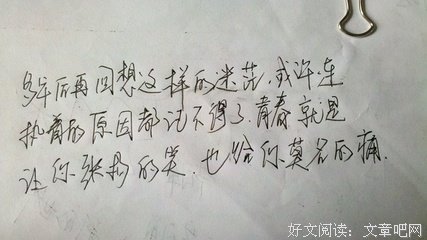 多年后再回想这样的迷茫,或许连
执着的原因都记不得了.青春就是
让你张扬的笑.也给你莫名的痛.
好文阅读:文章吧网